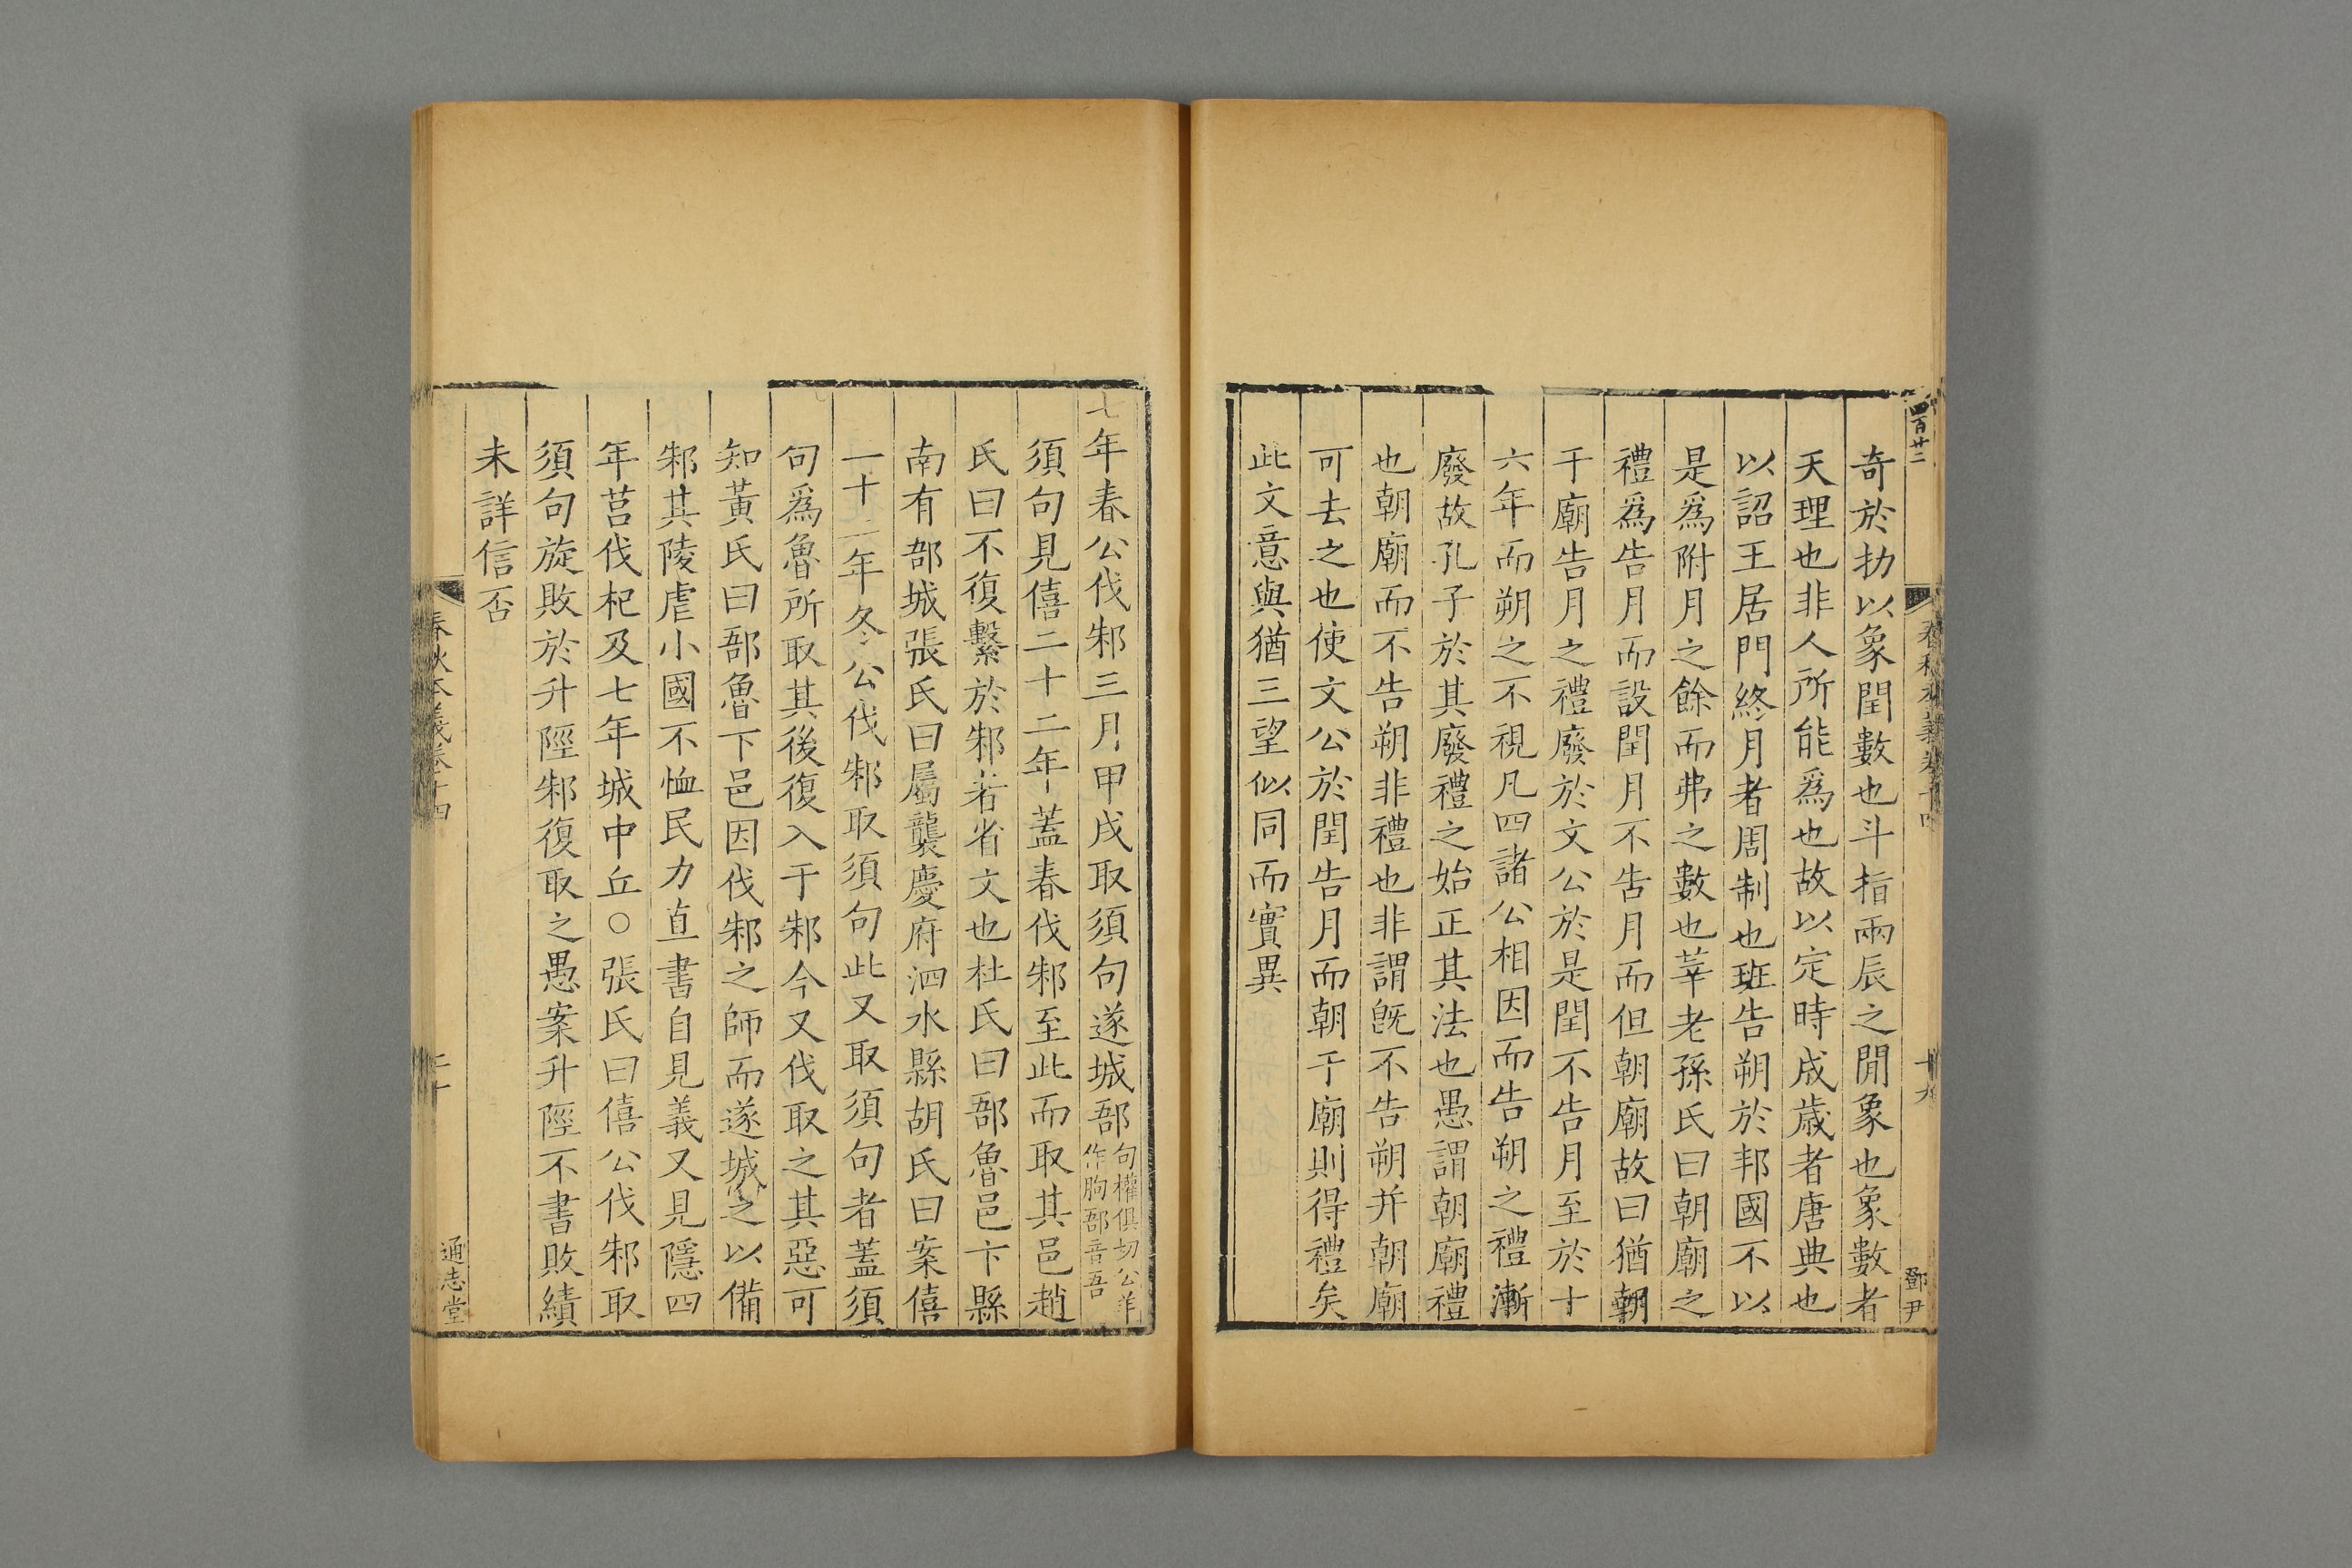 四百廿二
春秋本義卷十四
十九
鄧尹
奇於扐以象閏數也斗指兩辰之閒象也象數者
天理也非人所能爲也故以定時成歲者唐典也
以詔王居門終月者周制也班告朔於邦國不以
是爲附月之餘而弗之數也莘老孫氏曰朝廟之
禮爲告月而設閏月不告月而但朝廟故曰猶朝
于廟告月之禮廢於文公於是閏不告月至於十
六年而朔之不視凡四諸公相因而告朔之禮漸
廢故孔子於其廢禮之始正其法也愚謂朝廟禮
也朝廟而不告朔非禮也非謂旣不告朔并朝廟
可去之也使文公於閏告月而朝于廟則得禮矣
此文意與猶三望似同而實異
七年春公伐邾三月甲戌取須句遂城郚句權俱切公羊
作朐郚音吾
須句見僖二十二年蓋春伐邾至此而取其邑趙
氏曰不復繫於邾若省文也杜氏曰郚魯邑卞縣
南有郚城張氏曰屬襲慶府泗水縣胡氏曰案僖
二十二年冬公伐邾取須句此又取須句者蓋須
句爲魯所取其後復入于邾今又伐取之其惡可
知黃氏曰郚魯下邑因伐邾之師而遂城之以備
邾其陵虐小國不恤民力直書自見義又見隱四
年莒伐杞及七年城中丘○張氏曰僖公伐邾取
須句旋敗於升陘邾復取之愚案升陘不書敗績
未詳信否
春秋本義卷十四
二十
通志堂